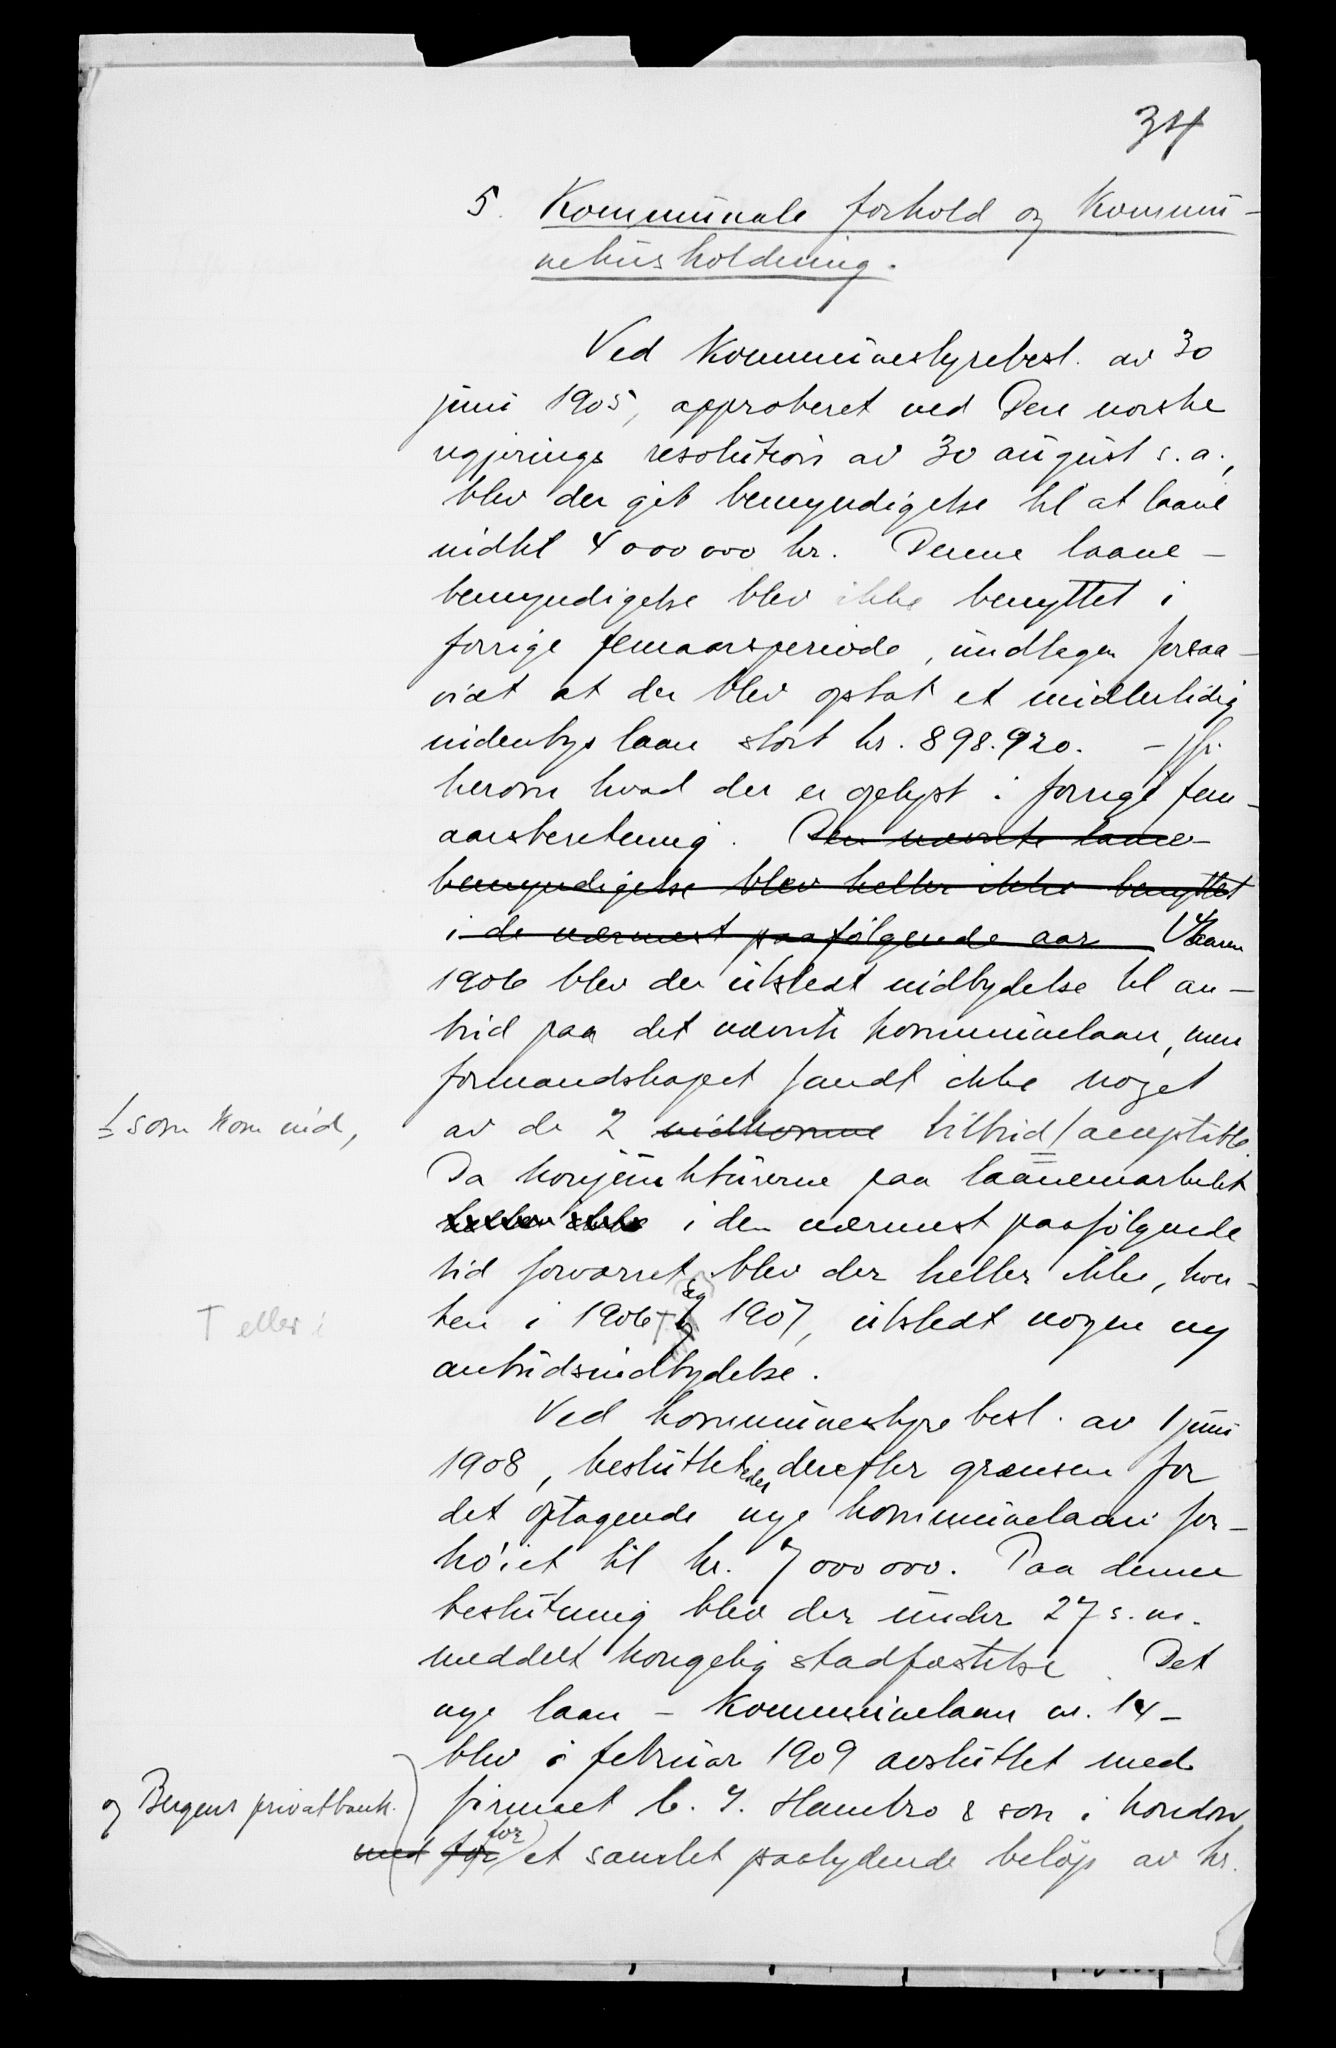 34
5. Kommunale forhold og Kommu-
nehusholdning.
Ved Kommunestyrebesl. av 30
juni 1905, approberet ved Den norske
regjerings resolution av 30 august s.a.,
blev der git bemyndigelse til at laane
indtil 4 000 000 kr. Denne laane-
bemyndigelse blev ikke benyttet i
forrige femaarsperiode, undtagen forsaa-
vidt at der blev optat et midlertidig
indenbys laan stort kr. 898.920. - jfr.
herom hvad der er oplyst i forrige fem-
aarsberetning. Den nævnte laane-
bemyndigelse blev heller ikke benyttet
i de nærmest paafølgende aar Vaaren
1906 blev der utstedt indbydelse til an-
bud paa det nævnte kommunelaan, men
formandskapet fandt ikke noget
som kom ind,
av de 2 indkomne tilbud / acceptable.
Da konjunkturerne paa laanemarkedet
heller ikke i den nærmest paafølgende
tid forværret blev der heller ikke, hver-
T eller i
ken i 1906 og 1907, utstedt nogen ny
anbudsindbydelse.
Ved kommunestyrebesl. av 1 juni
1908, besluttet derefter grænsen for
det optagende nye kommunelaan for-
høiet til kr. 7 000 000. Paa denne
beslutning blev der under 27 s. m.
meddelt kongelig stadfæstelse. Det
nye laan - Kommunelaan nr. 14 -
blev i februar 1909 avsluttet med
og Bergens privatbank.
firmaet C. J. Hambro & son i London
med for for et samlet paalydende beløp av kr.